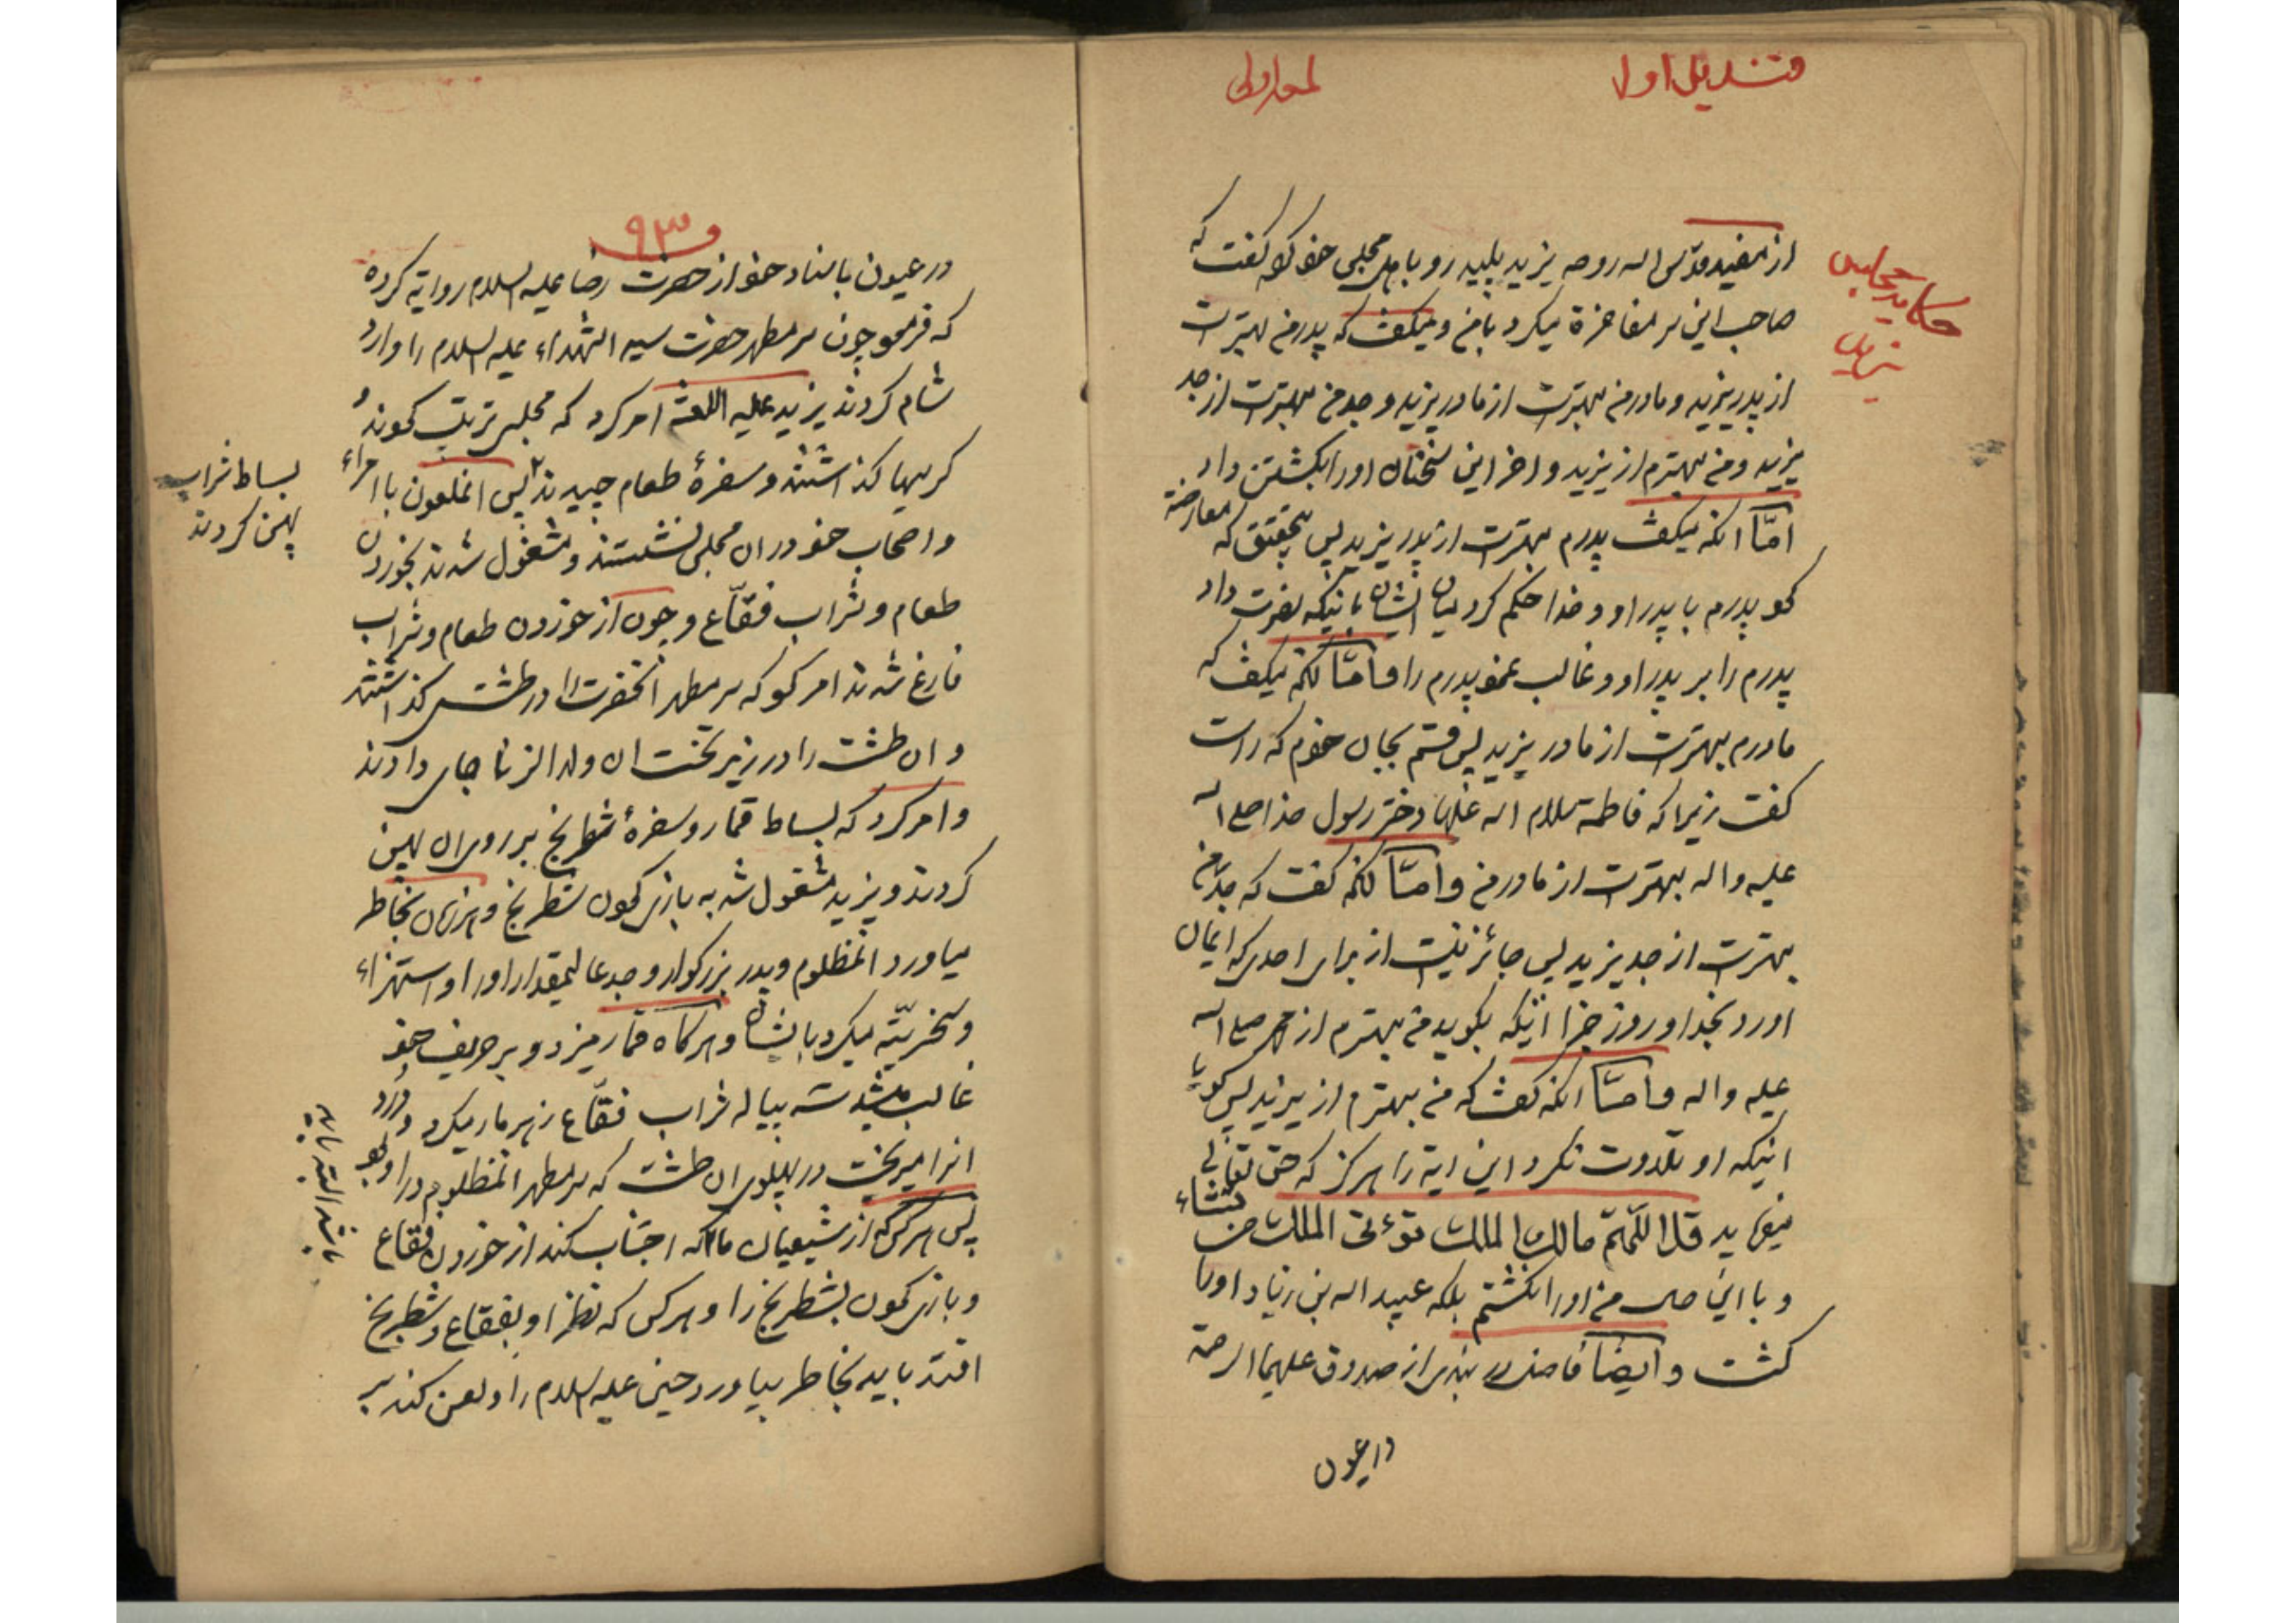 قندیل اول
لمعه اولی
حکایت مجلس
یزید
از مفید قدس اله روحه یزید پلید رو باهل مجلس خود کرد گفت که
صاحب این سر مفاخرة میکرد با من و میگفت که پدر من بهترست
از پدر یزید و مادر من بهترست از مادر یزید و جد من بهترست از جد
یزید و من بهترم از یزید و اخر این سخنان او را بکشتن داد
امّا انکه میگفت پدرم بهترست از پدر یزید پس بتحقیق که معارضة
کرد پدرم با پدر او و خدا حکم کرد میان ایشان باینکه نصرت داد
پدرم را بر پدر او و غالب نمود پدرم را و امّا انکه میگفت که
مادرم بهترست از مادر یزید پس قسم بجان خودم که راست
گفت زیرا که فاطمه سلام اله علیها دختر رسول خدا صلی اله
علیه و اله بهترست از مادر من و امّا انکه گفت که جدّ من
بهترست از جد یزید پس جائز نیست از برای احدی که ایمان
اورد بخدا و روز جزا اینکه بگوید من بهترم از محمد صلی اله
علیه و اله و امّا انکه گفت که من بهترم از یزید پس گویا
اینکه او تلاوت نکرد این ایه را هرگز که حق تعالی
میفرماید قل اللّهمّ مالک الملک تؤتی الملک من تشاء
و با این من او را نکشتم بلکه عبید اله بن زیاد او را
کشت و ایضا فاضل از صدوق علیهما الرحمة
در عیون
۹۳
در عیون باسناد خود از حضرت رضا علیه السلام روایة کرده
که فرمود چون سر مطهر حضرت سید الشهداء علیه السلام را وارد
شام کردند یزید علیه اللعنة امر کرد که مجلس ترتیب نمودند و
کرسیها گذاشتند و سفرهٔ طعام چیدند پس انملعون با امراء
و اصحاب خود در ان مجلس نشستند و مشغول شدند بخوردن
طعام و شراب فقّاع و چون از خوردن طعام و شراب
فارغ شدند امر نمود که سر مطهر انحضرت را در طشت گذاشتند
و ان طشت را در زیر تخت ان ولد الزنا جای دادند
و امر کرد که بساط قمار و سفرهٔ شطرنج بر روی ان پهن
کردند و یزید مشغول شد به بازی نمودن شطرنج و هر زمان بخاطر
میاورد انمظلوم و پدر بزرگوار و جد عالیمقدار او را و استهزاء
و سخریّه میکرد بایشان و هرگاه قمار میزد و بر حریف خود
غالب میشد سه پیاله شراب فقّاع زهر مار میکرد و دُرد
انرا میریخت در پهلوی ان طشت که سر مطهر انمظلوم در او بود
پس هر کس که از شیعیان ماست باید که اجتناب کند از خوردن فقّاع
و بازی نمودن بشطرنج را و هر کس که نظر او بفقّاع و شطرنج
افتد باید بخاطر بیاورد حسین علیه السلام را و لعن کند بر
بساط شراب
پهن کردند